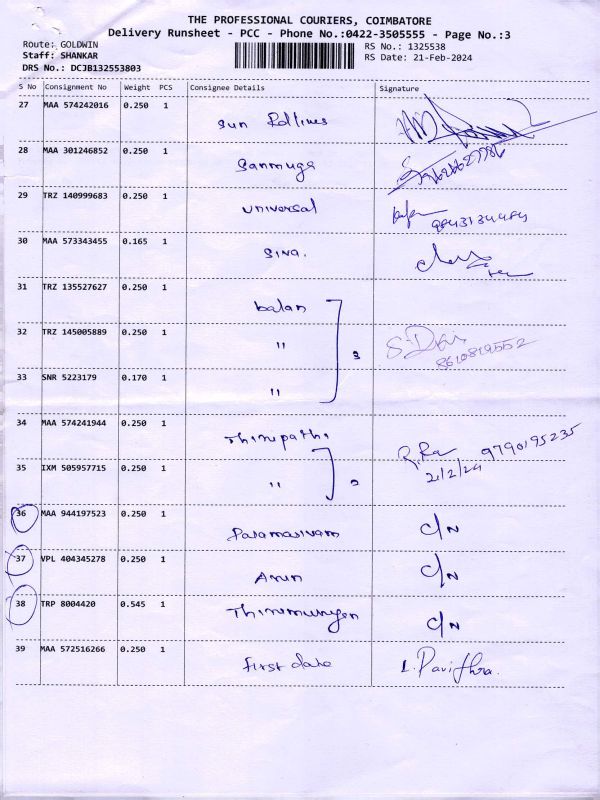 THE PROFESSIONAL COURIERS, COIMBATORE
Delivery Runsheet - PCC - Phone No.:0422-3505555 - Page No.:3
Route: GOLDWIN RS No.: 1325538
Staff: SHANKAR RS Date: 21-Feb-2024
DRS No.: DCJB132553803
S No Consignment No Weight PCS Consignee Details Signature
27 MAA 574242016 0.250 1
Sun
28 MAA 301246852 0.250 1
Sanmuga
29 TRZ 140999683 0.250 1
Universal
9843134484
30 MAA 573343455 0.165 1
Siva.
31 TRZ 135527627 0.250 1
balan
32 TRZ 145005889 0.250 1
" 3
8610819552
33 SNR 5223179 0.170 1
"
34 MAA 574241944 0.250 1
Thirupathi 9790195235
35 IXM 505957715 0.250 1 21/2/24
" 2
36 MAA 944197523 0.250 1
Paramasivam C/N
37 VPL 404345278 0.250 1
Arun C/N
38 TRP 8004420 0.545 1
Thirumurugan C/N
39 MAA 572516266 0.250 1
first date L. Pavithra.